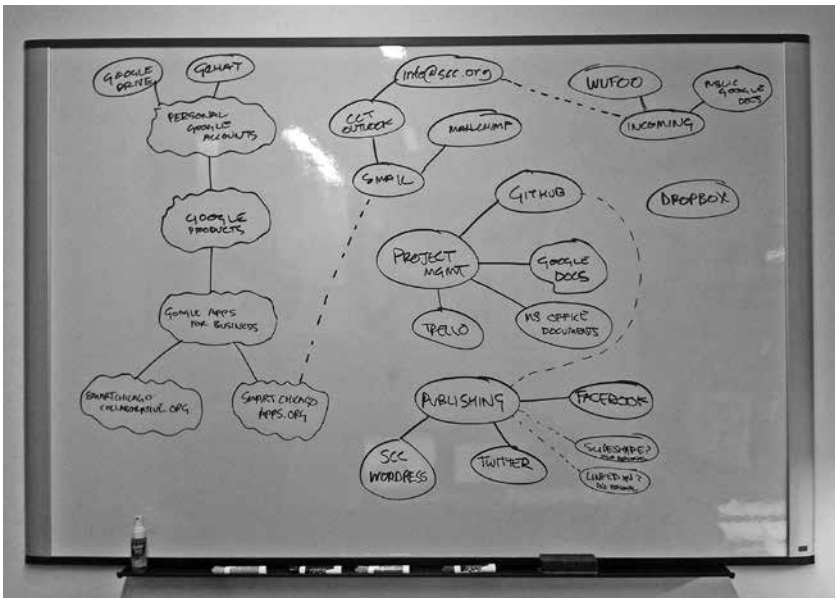 GOOGLE
DRIVE
GCHAT
PERSONAL
GOOGLE
ACCOUNTS
GOOGLE
PRODUCTS
GOOGLE APPS
FOR BUSINESS
SMARTCHICAGO
COLLABORATIVE.ORG
SMARTCHICAGO
APPS.ORG
info@scc.org
CCT
OUTLOOK
MAILCHIMP
GMAIL
WUFOO
PUBLIC
GOOGLE
DOCS
INCOMING
DROPBOX
GITHUB
PROJECT
MGMT
GOOGLE
DOCS
TRELLO
MS OFFICE
DOCUMENTS
PUBLISHING
FACEBOOK
SCC
WORDPRESS
TWITTER
SLIDESHARE?
LINKED IN?